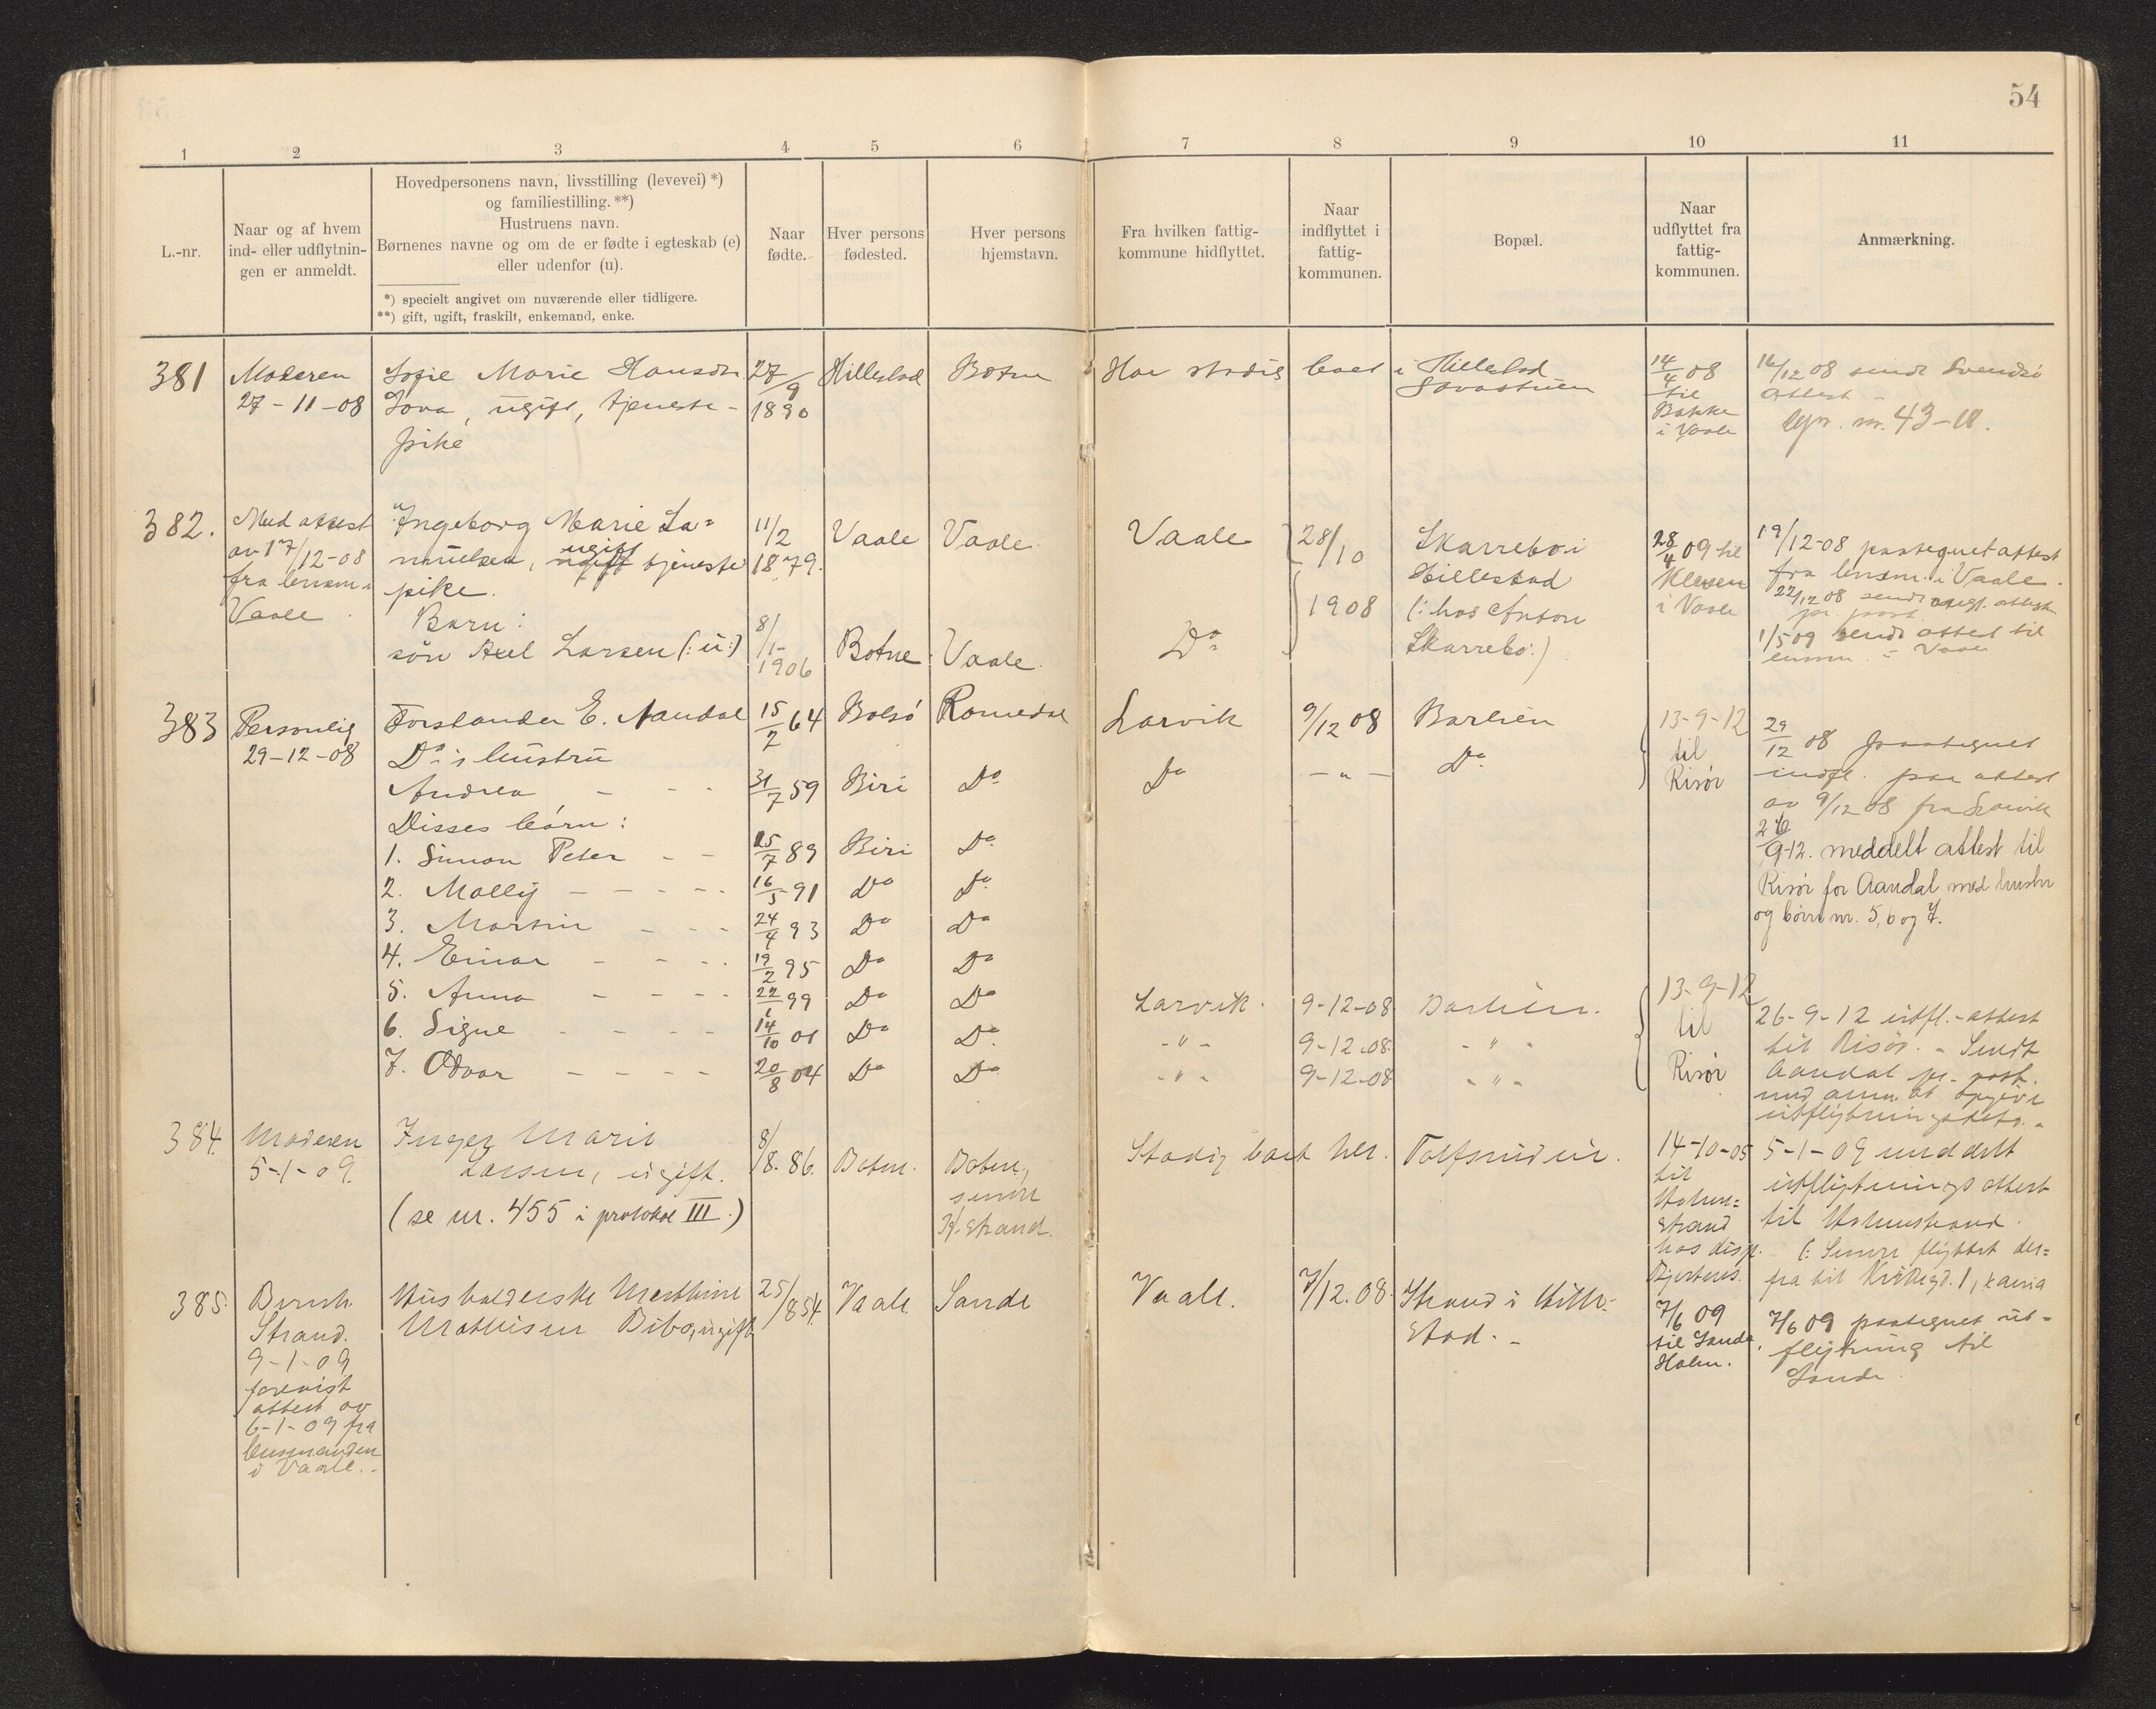 54
1 2 3 4 5 6 7 8 9 10 11
L.-nr.
Naar og af hvem
ind- eller udflytnin-
gen er anmeldt.
Hovedpersonens navn, livsstilling (levevei) *)
og familiestilling. **)
Hustruens navn.
Børnenes navne og om de er fødte i egteskab (e)
eller udenfor (u).
*) specielt angivet om nuværende eller tidligere.
**) gift, ugift, fraskilt, enkemand, enke.
Naar
fødte.
Hver persons
fødested.
Hver persons
hjemstavn.
Fra hvilken fattig-
kommune hidflyttet.
Naar
indflyttet i
fattig-
kommunen.
Bopæl.
Naar
udflyttet fra
fattig-
kommunen.
Anmærkning.
381
Moderen
27-11-08
Sofie Marie Hansdtr
ugift, tjeneste-
pike
27/9
1890
Hillestad
Botne
Har stadig boet i Hillestad
14/4 08
til
Bakke
i Vaale
16/12 08 sendt
attest
nr. 43-11.
382.
Med attest
av 17/12-08
fra lensm. i
Vaale
Ingeborg Marie Sa=
muelsen, ugift tjeneste
pike.
Barn:
søn Axel Larsen (: u :)
11/2
1879.
8/1-
1906
Vaale
Botne
Vaale
Vaale.
Vaale
Do
28/10
1908
Skarrebo i
Hillestad
(: hos Anton
Skarrebo :)
28/4 09 til
Kleven
i Vaale
19/12-08 paategnet attest
fra lensm. i Vaale.
22/12 08 sendt attest
pr. post
1/5 09 sendt attest til
lensm. i Vaale
383
Personlig
29-12-08
Forstander E. Aandal
Do's hustru
Andrea - - -
Disses børn:
1. Simon Peter - -
2. Molly - - - -
3. Martin - - -
4. Einar - - -
5. Anna - - - -
6. Signe - - - -
7. Odvar - - - -
15/2 64
31/7 59
25/7 89
16/5 91
24/4 93
19/2 95
22/1 99
14/10 01
20/8 04
Bolsø
Biri
Biri
Do
Do
Do
Do
Do
Do
Romedal
Do
Do
Do
Do
Do
Do
Do
Do
Larvik
Do
Larvik.
- " -
- " -
9/12 08
- " -
9-12-08
9-12-08.
9-12-08
Barlien
Do
Barlien.
- " -
- " -
13-9-12
til
Risør
13-9-12
til
Risør
29/12 08 paategnet
indfl. paa attest
av 9/12 08 fra Larvik
26/9-12. meddelt attest til
Risør for Aandal med hustru
og børn nr. 5, 6 og 7.
26-9-12 utfl.-attest
til Risør. - Sendt
Aandal pr. post.
med anm. at opgive
utflytningsdato. -
384.
Moderen
5-1-09.
Inger Marie
Larsen, ugift.
(se nr. 455 i protokol III.)
8/8. 86.
Botne.
Botne,
senere
H.strand.
Stadig boet her.
14-10-05
til
Holme=
strand
hos disp.
5-1-09 meddelt
utflytnings attest
til Holmestrand.
(: Senere flyttet der=
fra til
385.
Bernh.
Strand.
9-1-09
forevist
attest av
6-1-09 fra
lensmanden
i Vaale. -
Husholderske Mathine
Mathisen Dibo, ugift
25/8 54.
Vaale
Sande
Vaale.
7/12. 08.
Strand i Hille-
stad. -
7/6 09
til Sande,
Holm.
7/6 09 paategnet ut-
flytning til
Sande